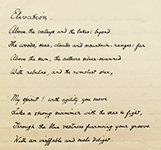 Elevation.
Above the valleys and the lakes: beyond
The woods, seas, clouds and mountain-ranges: far
Above the sun, the aethers silver-swanned
With nebulae, and the remotest star,
My spirit! with agility you move
Like a strong swimmer with the seas to fight,
Through the blue vastness furrowing your groove
With an ineffable and male delight.